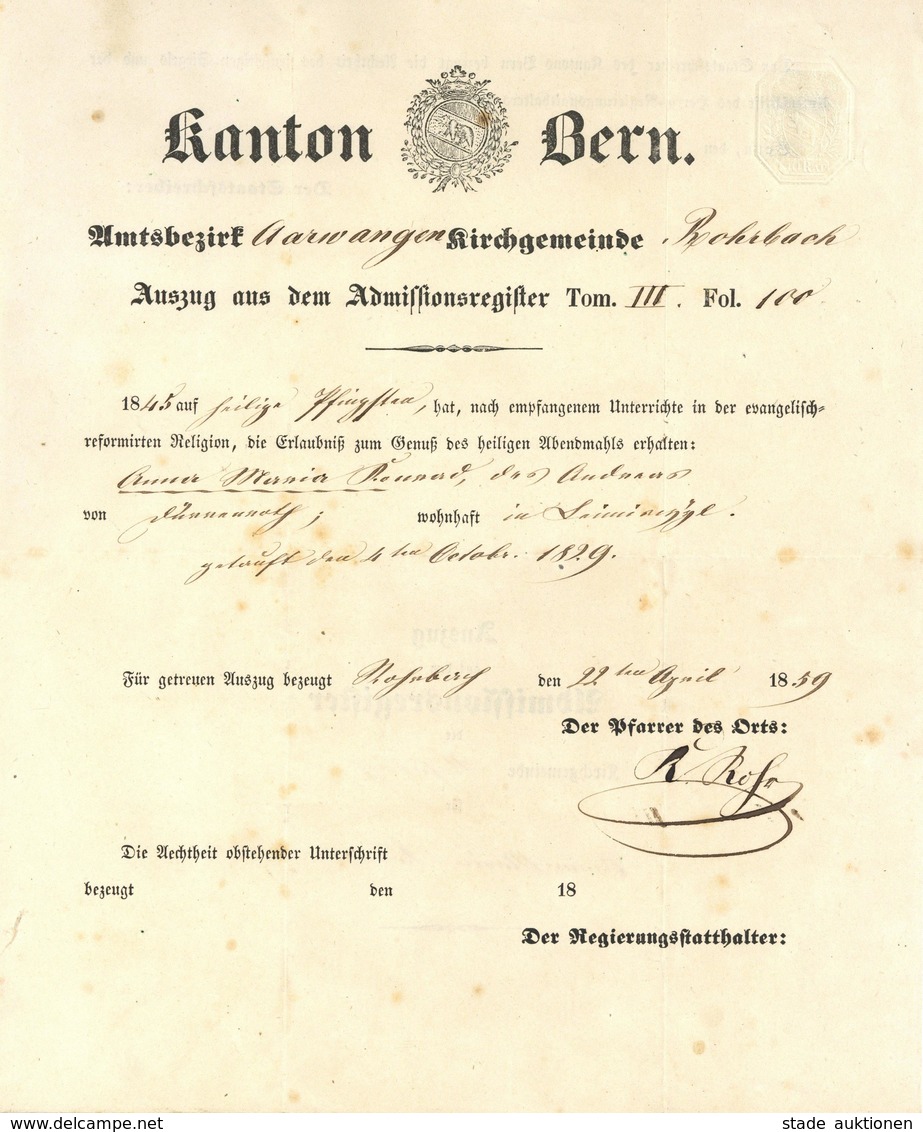 Kanton Bern.
Amtsbezirk Aarwangen Kirchgemeinde Rohrbach
Auszug aus dem Admissionsregister Tom. III. Fol. 100.
1845 auf heilige Pfingsten, hat, nach empfangenem Unterrichte in der evangelisch-
reformirten Religion, die Erlaubniß zum Genuß des heiligen Abendmahls erhalten:
Anna Maria Konrad, des Andreas
von Dürrenroth; wohnhaft in
getauft den 4ten Octobr. 1829.
Für getreuen Auszug bezeugt Rohrbach den 22ten April 1859
Der Pfarrer des Orts:
R. Rohr
Die Aechtheit obstehender Unterschrift
bezeugt den 18
Der Regierungsstatthalter:
www.delcampe.net
stade auktionen